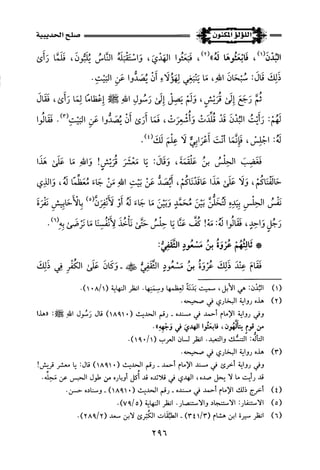 اللؤلؤ المكنون
صلح الحديبية
البُدْنَ(١)، فَابْعَثُوهَا لَهُ»(٢)، فَبَعَثُوا الهَدْيَ، وَاسْتَقْبَلَهُ النَّاسُ يُلَبُّونَ، فَلَمَّا رَأَى
ذَلِكَ قَالَ: سُبْحَانَ اللهِ، مَا يَنْبَغِي لِهَؤُلَاءِ أَنْ يُصَدُّوا عَنِ البَيْتِ.
ثُمَّ رَجَعَ إِلَى قُرَيْشٍ، وَلَمْ يَصِلْ إِلَى رَسُولِ اللهِ ﷺ إِعْظَامًا لِمَا رَأَى، فَقَالَ
لَهُمْ: رَأَيْتُ البُدْنَ قَدْ قُلِّدَتْ وَأُشْعِرَتْ، فَمَا أَرَى أَنْ يُصَدُّوا عَنِ البَيْتِ(٣). فَقَالُوا
لَهُ: اجْلِسْ، فَإِنَّمَا أَنْتَ أَعْرَابِيٌّ لَا عِلْمَ لَكَ(٤).
فَغَضِبَ الحِلْسُ بنُ عَلْقَمَةَ، وَقَالَ: يَا مَعْشَرَ قُرَيْشٍ! وَاللهِ مَا عَلَى هَذَا
حَالَفْنَاكُمْ، وَلَا عَلَى هَذَا عَاقَدْنَاكُمْ، أَيُصَدُّ عَنْ بَيْتِ اللهِ مَنْ جَاءَ مُعَظِّمًا لَهُ، وَالذِي
نَفْسُ الحِلْسِ بِيَدِهِ لَتُخَلُّنَّ بَيْنَ مُحَمَّدٍ وَبَيْنَ مَا جَاءَ لَهُ أَوْ لَأَنْفِرَنَّ(٥) بِالأَحَابِيشِ نَفْرَةَ
رَجُلٍ وَاحِدٍ، فَقَالُوا لَهُ: مَهْ! كُفَّ عَنَّا يَا حِلْسُ حَتَّى نَأْخُذَ لِأَنْفُسِنَا مَا نَرْضَى بِهِ(٦).
* ثَالِثُهُمْ عُرْوَةُ بنُ مَسْعُودٍ الثَّقَفِيُّ:
فَقَامَ عِنْدَ ذَلِكَ عُرْوَةُ بنُ مَسْعُودٍ الثَّقَفِيُّ - وَكَانَ عَلَى الكُفْرِ فِي ذَلِكَ
(١) البُدْن: هي الأبل، سميت بَدَنَةً لِعِظمها وسِمَنِها. انظر النهاية (١/١٠٨).
(٢) هذه رواية البخاري في صحيحه.
وفي رواية الإمام أحمد في مسنده - رقم الحديث (١٨٩١٠) قال رَسُول الله ﷺ: «هذا
من قوم يتألَّهُون، فابعَثُوا الهديَ في وَجْهِه».
التألُّه: التنسُّك والتعبد. انظر لسان العرب (١/١٩٠).
(٣) هذه رواية البخاري في صحيحه.
وفي رواية أخرى في مسند الإمام أحمد - رقم الحديث (١٨٩١٠) قال: يا معشر قريش!
قد رأيت ما لا يحل صده، الهدي في قلائده قد أكل أوباره من طول الحبس عن مَحِلِّه.
(٤) أخرج ذلك الإمام أحمد في مسنده - رقم الحديث (١٨٩١٠) - وسناده حسن.
(٥) الاستنفار: الاستنجاد والاستنصار. انظر النهاية (٥/٧٩).
(٦) انظر سيرة ابن هشام (٣/٣٤١) - الطَّبَقَات الكُبْرى لابن سعد (٢/٢٨٩).
٢٩٦